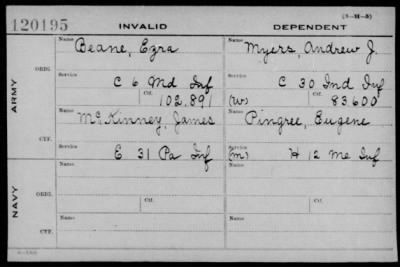 (3-M-8)
120195 INVALID DEPENDENT
ARMY
ORIG.
Name Beane, Ezra
Service C 6 Md Inf
Ctf. 102,891
Name Myers, Andrew J.
Service C 30 Ind Inf
(W) Ctf. 83600
CTF.
Name McKinney, James
Service E 31 Pa Inf
Name Pingree, Eugene
Service
(M) H 12 Me Inf
NAVY
ORIG.
Name
Ctf.
Name
Ctf.
CTF.
Name
Name